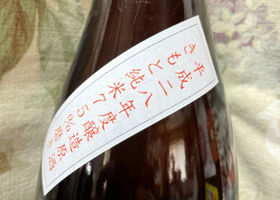 平成二八年度醸造原酒
きもと純米７５％磨き